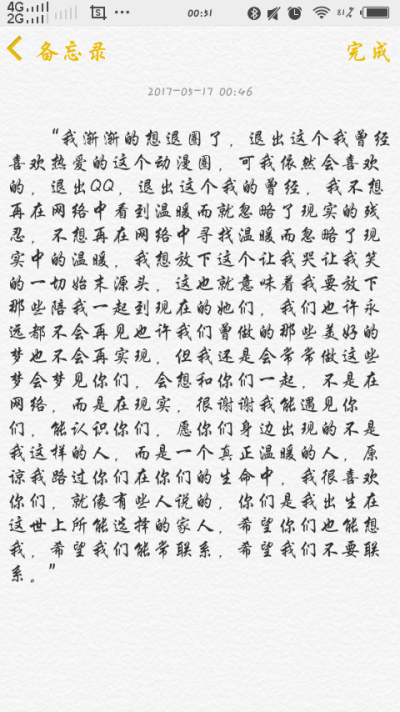 4G
2G
00:51
81%
备忘录
完成
2017-05-17 00:46
“我渐渐的想退圈了，退出这个我曾经
喜欢热爱的这个动漫圈，可我依然会喜欢
的，退出QQ，退出这个我的曾经，我不想
再在网络中看到温暖而就忽略了现实的残
忍，不想再在网络中寻找温暖而忽略了现
实中的温暖，我想放下这个让我哭让我笑
的一切始末源头，这也就意味着我要放下
那些陪我一起到现在的她们，我们也许永
远都不会再见也许我们曾做的那些美好的
梦也不会再实现，但我还是会常常做这些
梦会梦见你们，会想和你们一起，不是在
网络，而是在现实，很谢谢我能遇见你
们，能认识你们，愿你们身边出现的不是
我这样的人，而是一个真正温暖的人，原
谅我路过你们在你们的生命中，我很喜欢
你们，就像有些人说的，你们是我出生在
这世上所能选择的家人，希望你们也能想
我，希望我们能常联系，希望我们不要联
系。”